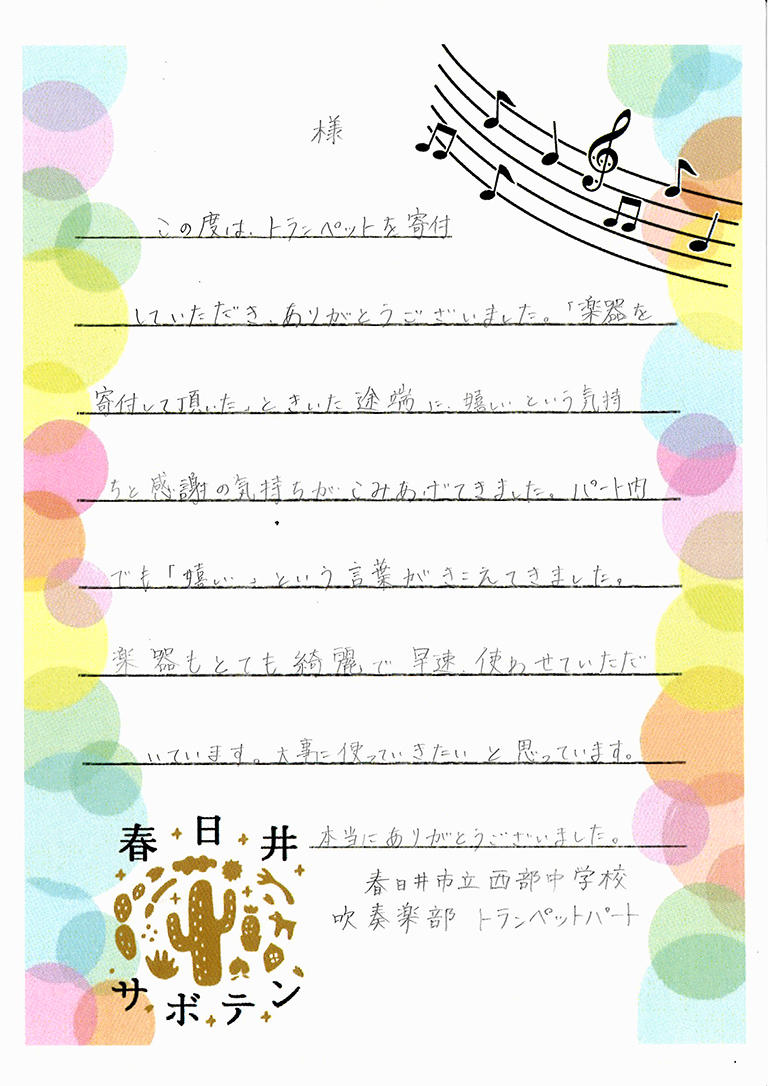 様
この度は、トランペットを寄付
していただき、ありがとうございました。「楽器を
寄付して頂いた」ときいた途端に、嬉しいという気持
ちと感謝の気持ちが、こみあげてきました。パート内
でも「嬉しい」という言葉がきこえてきました。
楽器もとても綺麗で早速、使わせていただ
いています。大事に使っていきたいと思っています。
本当にありがとうございました。
春日井市立西部中学校
吹奏楽部 トランペットパート
春日井
サボテン